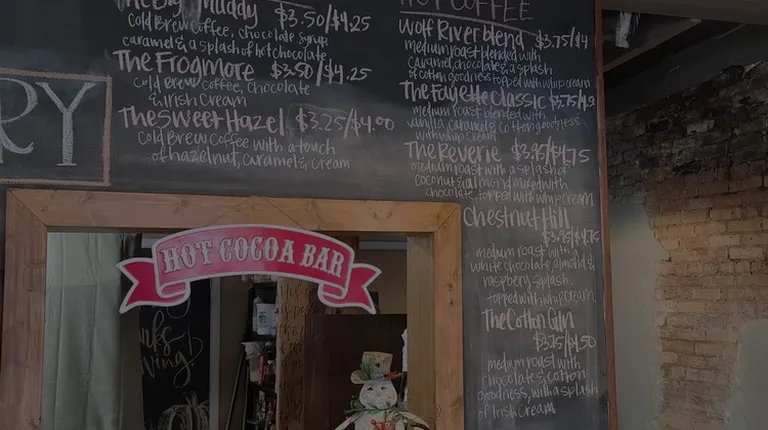 Muddy $3.50/$4.25
Cold Brew Coffee, chocolate syrup,
caramel, & a splash of hot chocolate
The Frogmore $3.50/$4.25
Cold Brew Coffee, chocolate
& Irish Cream
The Sweet Hazel $3.25/$4.00
Cold Brew Coffee with a touch
of hazelnut, caramel, & cream
RY
HOT COFFEE
Wolf River blend $3.75/$4
medium roast blended with
caramel, chocolate, & a splash
of cotton goodness topped with whip cream
The Fayette Classic $3.75/4.9
medium roast blended with
vanilla, caramel, & cotton goodness
with whip cream
The Reverie $3.95/$4.75
medium roast with a splash of
coconut & almond mixed with
chocolate, topped with whip cream
Chestnut Hill
$3.95/$4.75
medium roast with
white chocolate, almond &
raspberry splash.
topped with whip cream.
The Cotton Gin
$3.75/$4.50
medium roast with
chocolate & cotton
goodness, with a splash
of Irish Cream
HOT COCOA BAR